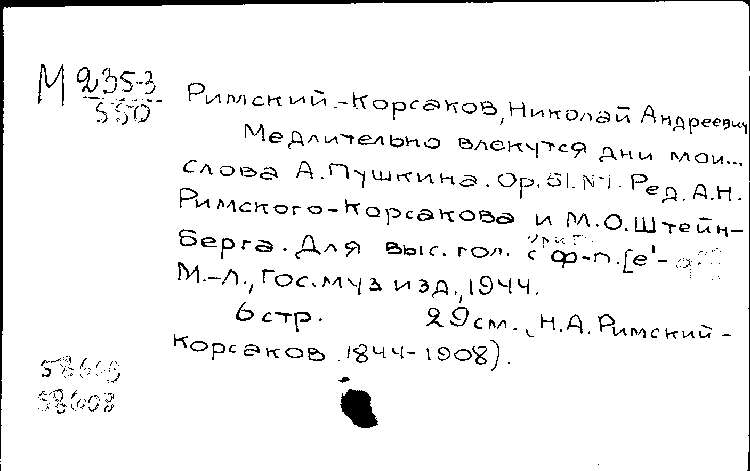 М 235-3
550
Римский-Корсаков, Николай Андреевич
Медлительно влекутся дни мои...
слова А.Пушкина. Ор.51.№1. Ред. А.Н.
Римского-Корсакова и М.О.Штейн-
берга. Для выс. гол. с ф-п. [е'-
М.-Л., Гос.муз изд., 1944.
6 стр. 29 см. (Н.А.Римский-
Корсаков 1844-1908).
58608